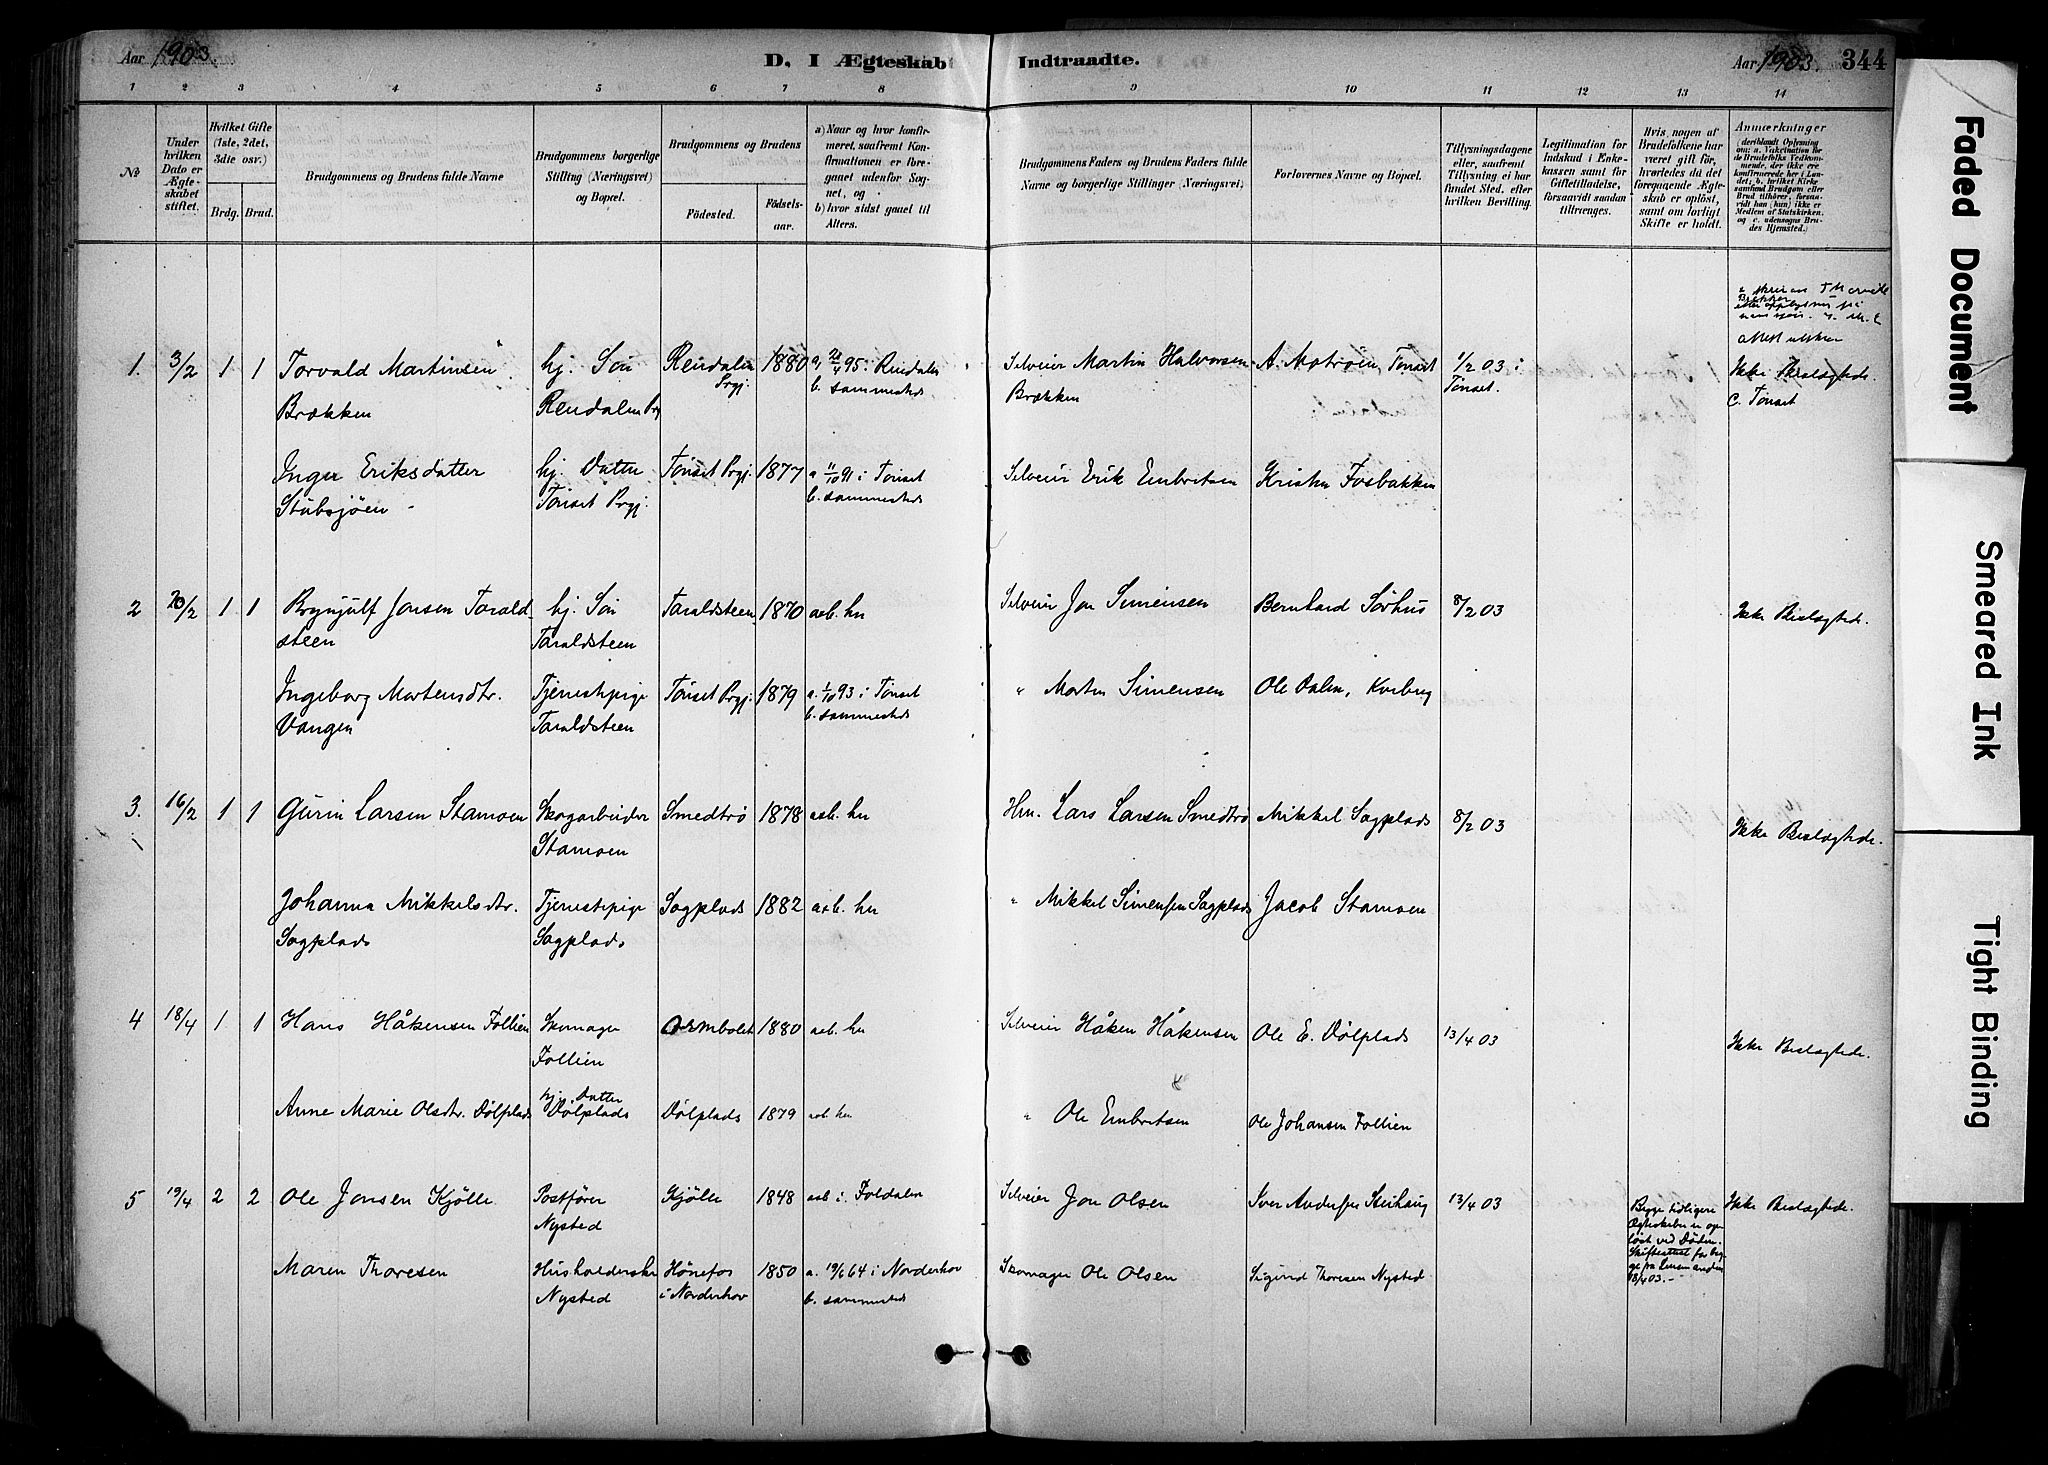 Aar 1903.
D. I Ægteskab Indtraadte.
Aar 1903. 344
1 2 3 4 5 6 7 8 9 10 11 12 13 14
No
Under hvilken Dato er Ægteskabet stiftet.
Hvilket Gifte (1ste, 2det, 3die osv.)
Brdg. Brud.
Brudgommens og Brudens fulde Navne
Brudgommens borgerlige Stilling (Næringsvei) og Bopæl.
Brudgommens og Brudens
Födested.
Födsels-aar.
a) Naar og hvor konfirmeret, saafremt Konfirmationen er foregaaet udenfor Sognet, og
b) hvor sidst gaaet til Alters.
Brudgommens Faders og Brudens Faders fulde Navne og borgerlige Stillinger (Næringsvei)
Forlovernes Navne og Bopæl.
Tillysningsdagene eller, saafremt Tillysning ei har fundet Sted, efter hvilken Bevilling.
Legitimation for Indskud i Enkekassen samt for Giftetilladelse, forsaavidt saadan tiltrænges.
Hvis nogen af Brudefolkene har været gift før, hvorledes da det foregaaende Ægteskab er oplöst, samt om lovligt Skifte er holdt.
Anmærkninger
(deriblandt Oplysning om: a. Vakcination for de Brudefolks Vedkommende, der ikke ere konfirmerede her i Landet; b. hvilket Kirkesamfund Brudgom eller Brud tilhörer, forsaavidt han (hun) ikke er Medlem af Statskirken, og c. udensogns Brudes Hjemsted.)
1. 3/2 1 1 Torvald Martinsen hj. Sön Rendalen 1880 a. 21/4 95 i Rendalen Selveier Martin Halvorsen A. Motröen, Tönset 1/2 03 i Ikke Beslægtede.
Brækken Rendalen Prgj. Prgj. b. sammesteds Brækken Tönset. C. Tönset
Inger Eriksdatter hj. Datter Tönset Prgj. 1877 a. 11/10 91 i Tönset Selveier Erik Embretsen Kristen Fosbakken
Stubsjöen Tönset Prgj. b. sammesteds
2 20/2 1 1 Brynjulf Jonsen Tarald- hj. Sön Taraldsteen 1870 aab. her Selveier Jon Simensen Bernhard Sörhus 8/2 03 Ikke Beslægtede.
steen Taraldsteen
Ingeborg Mortensdtr. Tjenestepige Tönset Prgj. 1879 a. 1/10 93 i Tönset " Morten Simensen Ole Dalen, Kvebrg
Vangen Taraldsteen b. sammesteds
3. 16/2 1 1 Gurin Larsen Stamoen Skogarbeider Smedtrö 1878 aab. her Hm. Lars Larsen Smedtrö Mikkel Sagplads 8/2 03 Ikke Beslægtede.
Stamoen
Johanna Mikkelsdtr. Tjenestepige Sagplads 1882 aab. her " Mikkel Simensen Sagplads Jacob Stamoen
Sagplads Sagplads
4 18/4 1 1 Hans Håkensen Follien Skomager Ormbolet 1880 aab. her Selveier Håken Håkensen Ole E. Dölplads 13/4 03 Ikke Beslægtede.
Follien
Anne Marie Olsdtr. Dölplads hj. Datter Dölplads 1879 aab. her " Ole Embretsen Ole Johansen Follien
Dölplads
5 19/4 2 2 Ole Jonsen Kjölle Postförer Kjölle 1848 aab i Foldalen Selveier Jon Olsen Iver Andersen Steihaug 13/4 03 Begge tidligere Ikke Beslægtede.
Nysted Ægteskaber er oplöst ved Döden. Skifteattest for begge fra Lensmanden 18/4 03.
Maren Thoresen Husholderske Hönefos 1850 a. 19/6 64 i Norderhov Skomager Ole Olsen Sigurd Thoresen Nysted
Nysted i Norderhov b. sammesteds
Faded Document
Smeared Ink
Tight Binding